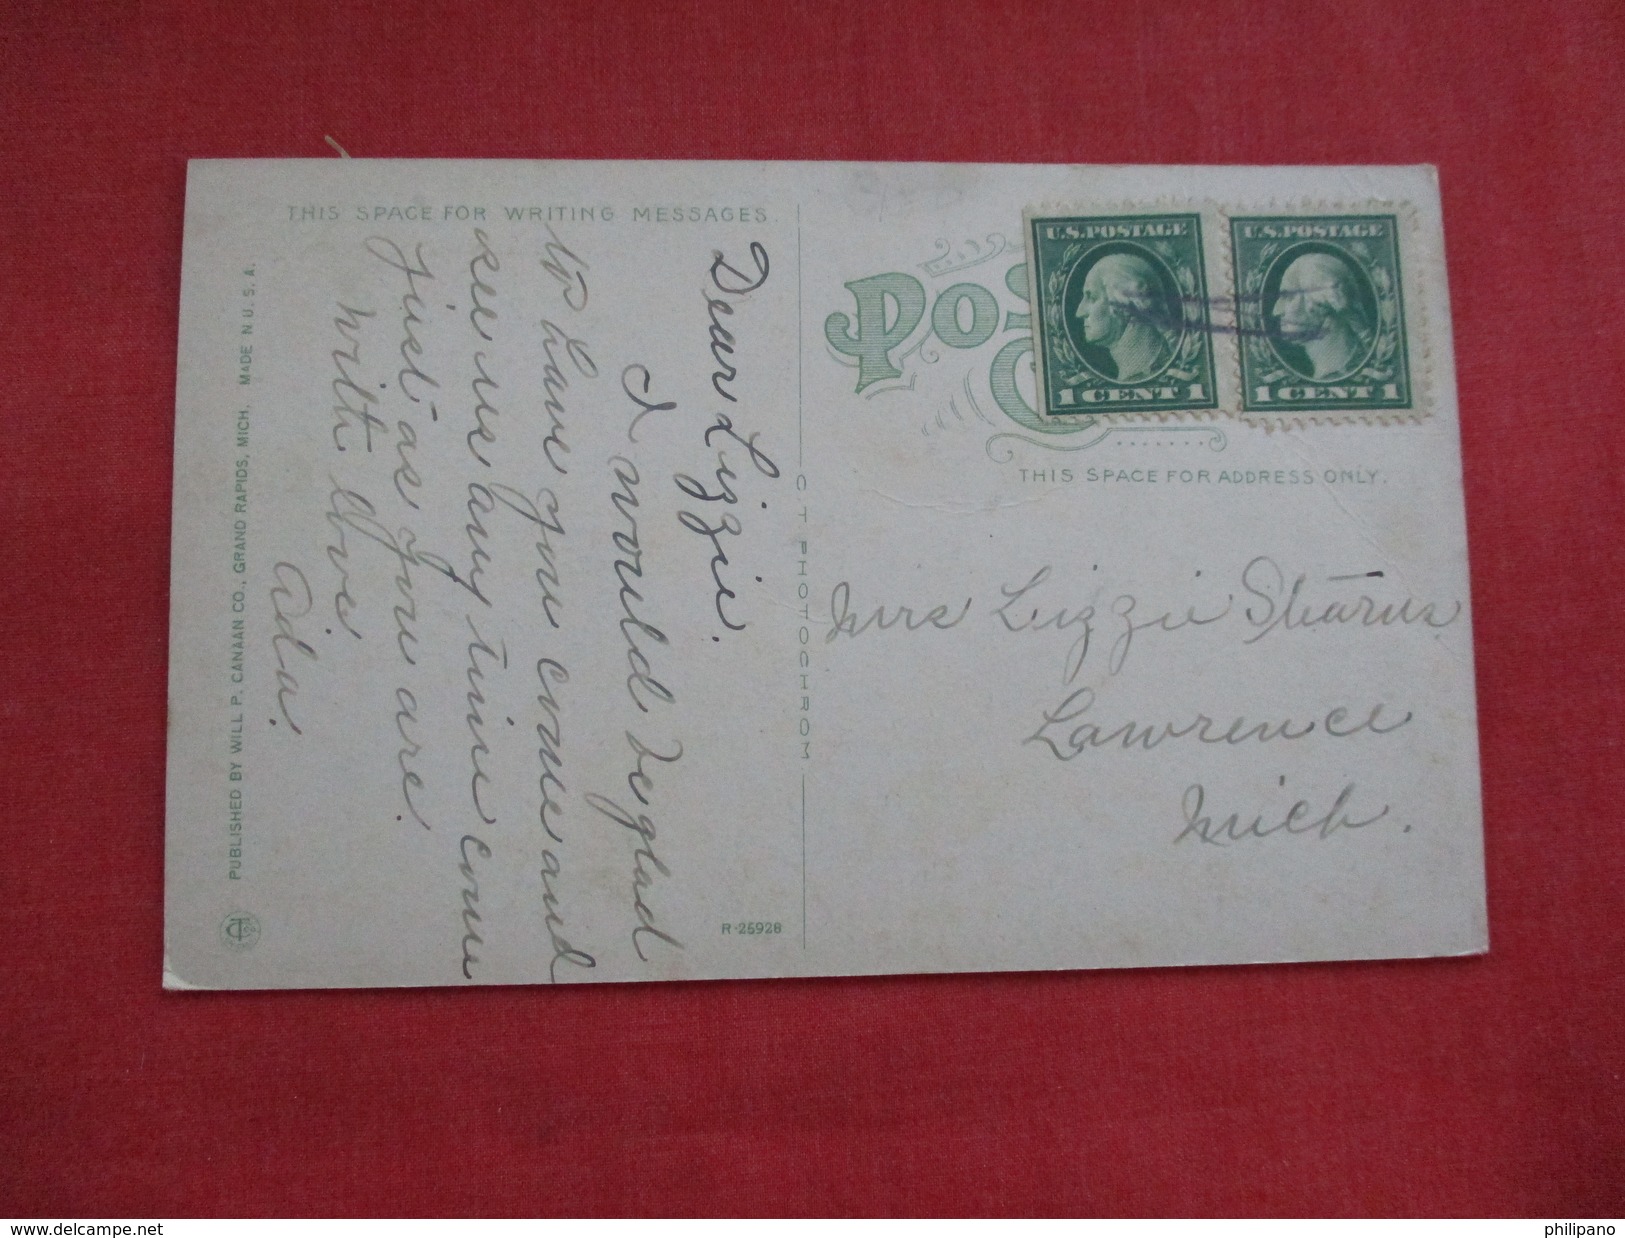 THIS SPACE FOR WRITING MESSAGES.
Dear Lizzie.
I would be glad
to have you come and
see us any time come
just as you are.
With Love
Ada.
PUBLISHED BY WILL P. CANAAN CO., GRAND RAPIDS, MICH. MADE N U. S. A.
R-25928
C T PHOTOCHROM
U.S. POSTAGE
1 CENT 1
U.S. POSTAGE
1 CENT 1
THIS SPACE FOR ADDRESS ONLY.
Mrs Lizzie Stearns
Lawrence
Mich.
www.delcampe.net
philipano